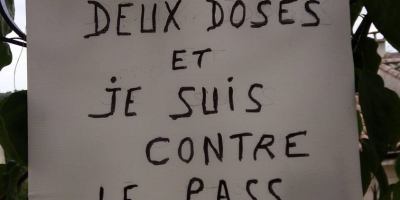 DEUX DOSES
ET
JE SUIS
CONTRE
LE PASS